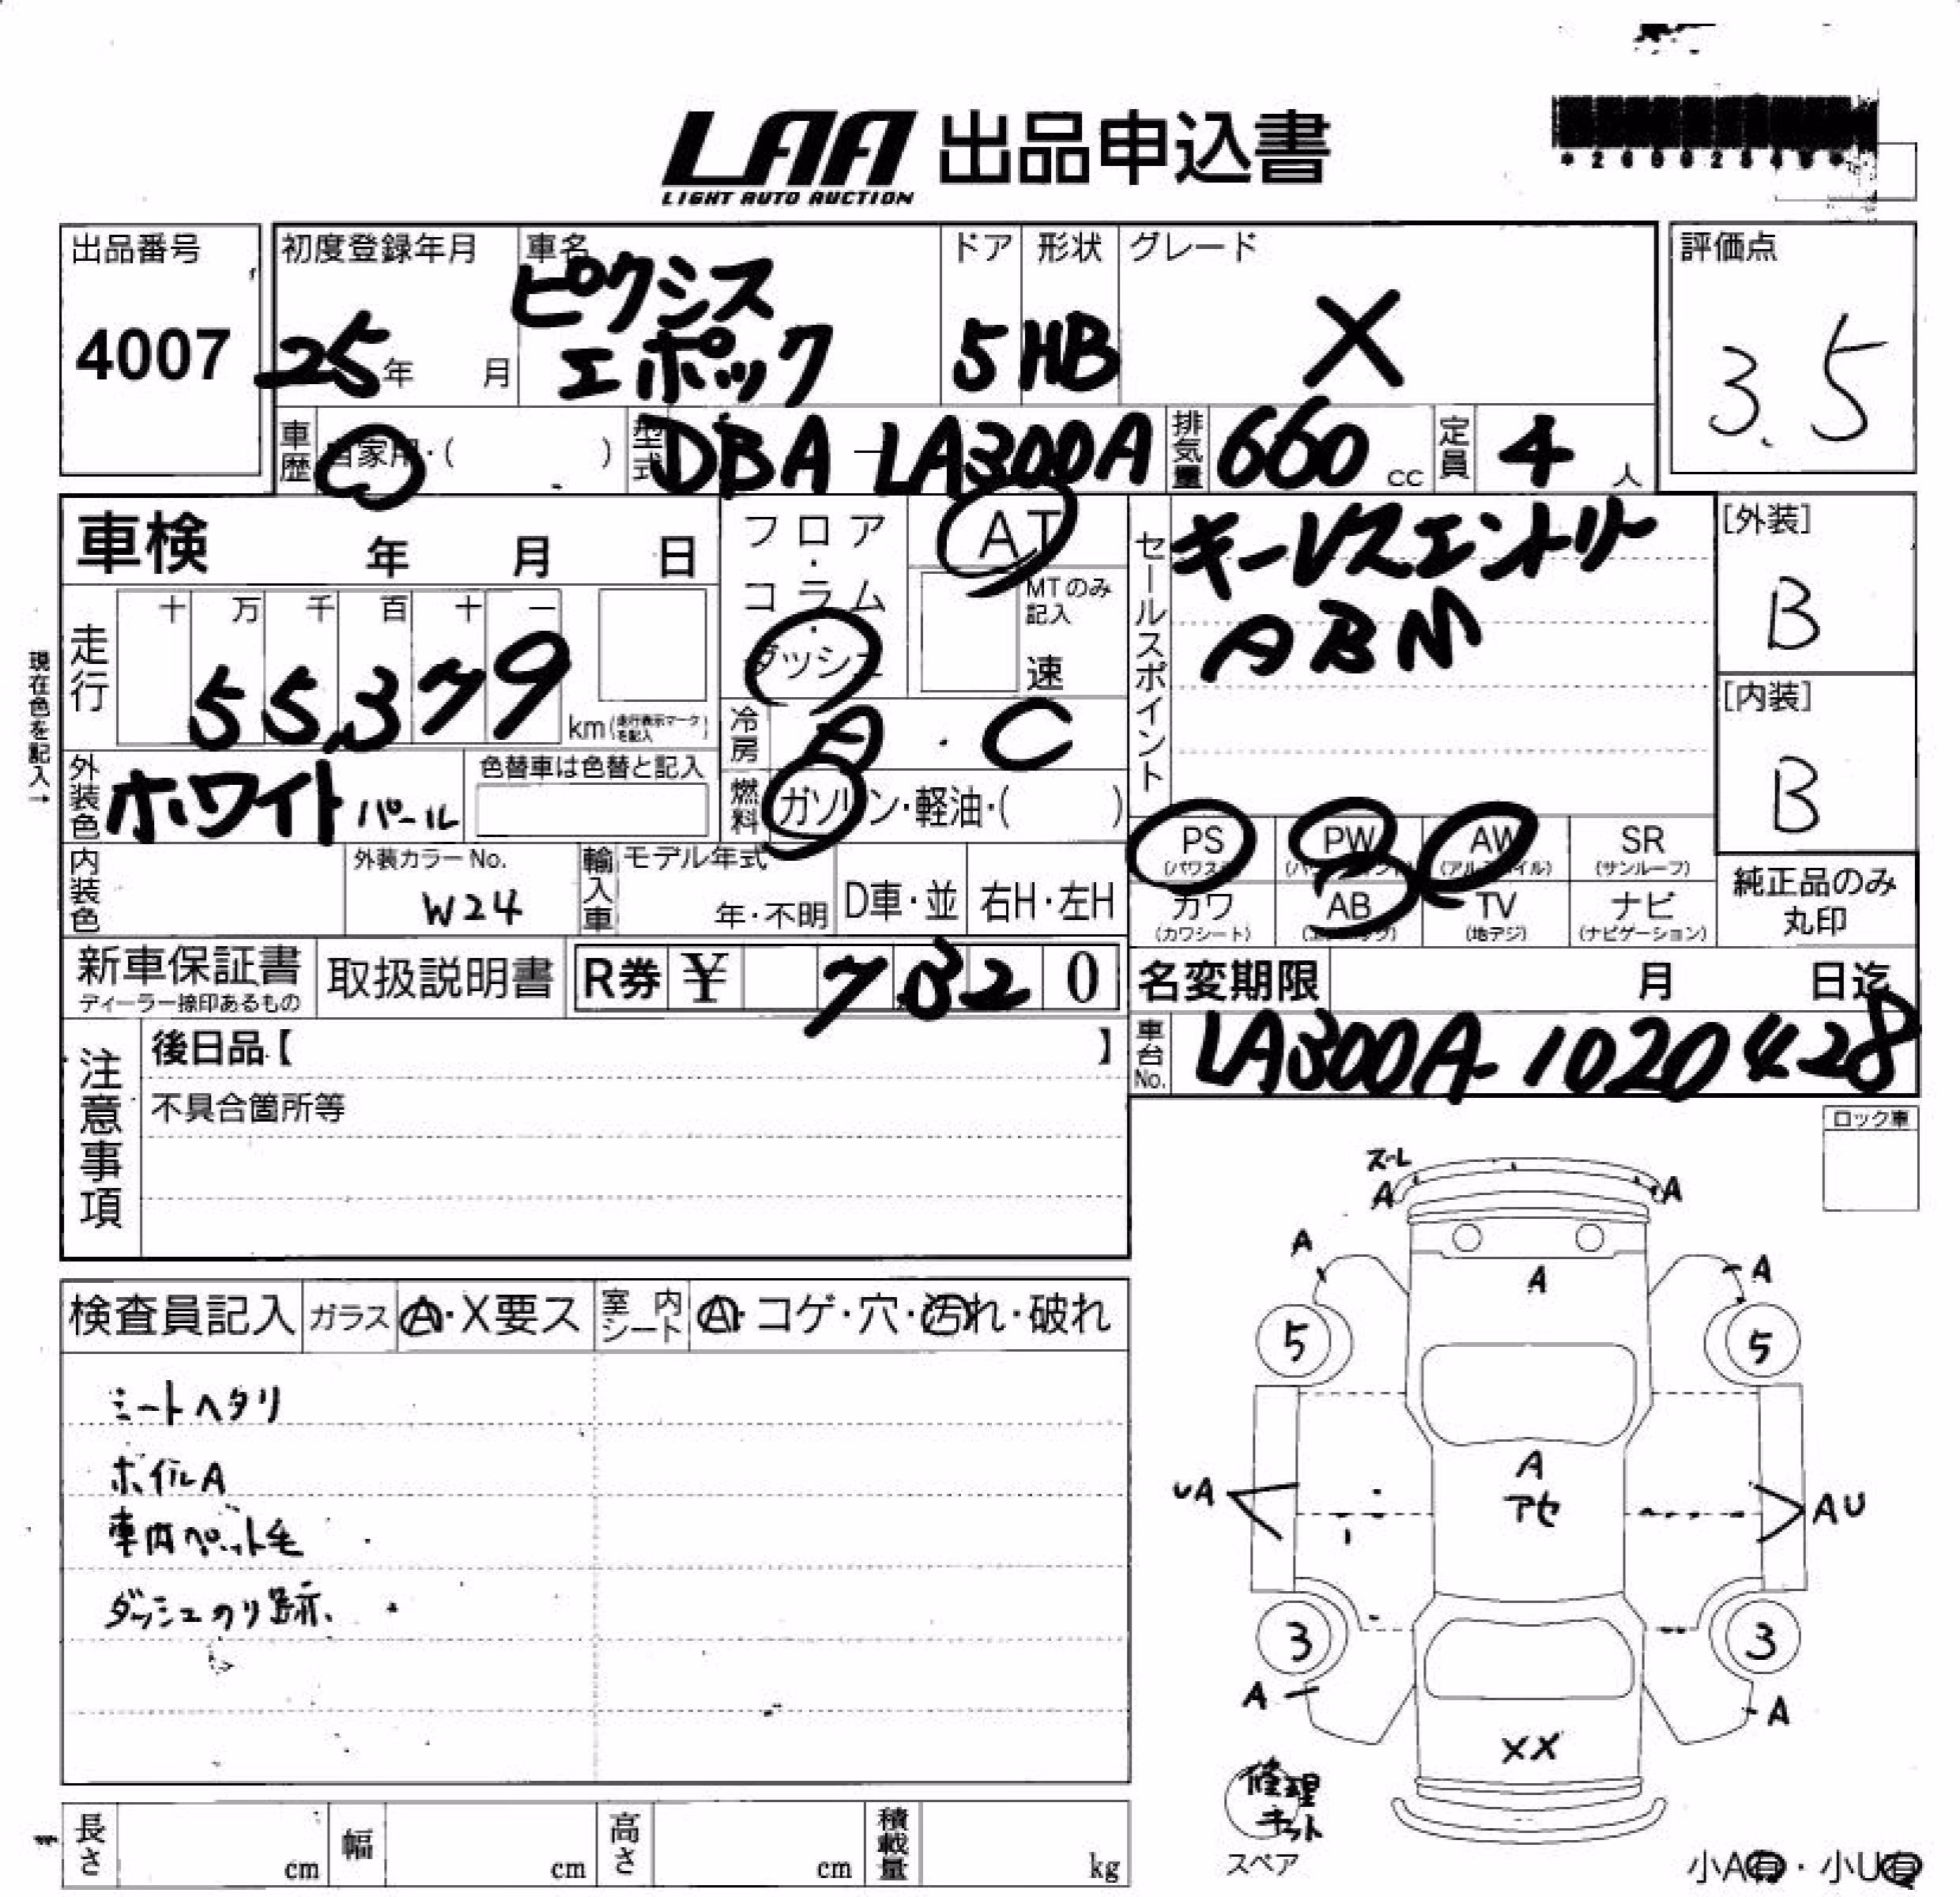 LAA 出品申込書
LIGHT AUTO AUCTION
出品番号
4007
初度登録年月
25年 月
車名
ピクシス
エポック
ドア
5
形状
HB
グレード
X
評価点
3.5
車歴
自家用・( )
型式
DBA-LA300A
排気量
660 cc
定員
4 人
車検 年 月 日
フロア・コラム・ダッシュ
AT
MTのみ記入
速
セールスポイント
キーレスエントリー
ABM
[外装]
B
[内装]
B
現在色を記入→
走行
十 万 千 百 十 一
55,379
km(走行表示マークを記入)
冷房
A・C
外装色
ホワイト パール
色替車は色替と記入
燃料
ガソリン・軽油・( )
PS
(パワステ)
PW
AW
SR
(サンルーフ)
カワ
(カワシート)
AB
TV
(地デジ)
ナビ
(ナビゲーション)
純正品のみ
丸印
内装色
外装カラーNo.
W24
輸入車
モデル年式
年・不明
D車・並
右H・左H
新車保証書
ディーラー捺印あるもの
取扱説明書
R券 ¥ 7,320
名変期限 月 日迄
車台No.
LA300A-1020428
注意事項
後日品【 】
不具合箇所等
ロック車
検査員記入
ガラス
A・X要ス
室内シート
A・コゲ・穴・汚れ・破れ
シートヘタリ
ホイルA
車内ペット毛
ダッシュのり跡.
ス-L
A
A
A
A
A
5
5
A
アセ
UA
AU
3
3
A
A
XX
修理
キット
スペア
小A有・小U有
長さ cm
幅 cm
高さ cm
積載量 kg